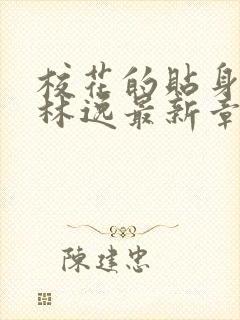 校花的贴身
林逸最新章
陳建忠